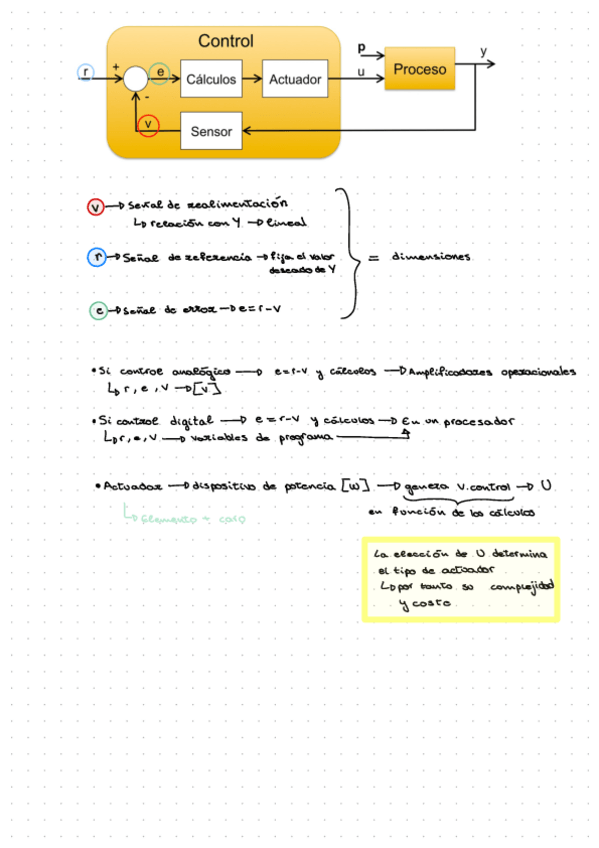 Control
p
y
r
+
e
Cálculos
Actuador
u
Proceso
-
v
Sensor
v → Señal de realimentación
↳ relación con Y → lineal
r → Señal de referencia → fija el valor deseado de Y
= dimensiones
e → Señal de error → e = r - v
• Si control analógico → e = r-v y cálculos → Amplificadores operacionales
↳ r, e, v → [v]
• Si control digital → e = r-v y cálculos → En un procesador
↳ r, e, v → variables de programa
• Actuador → dispositivo de potencia [w] → genera v.control → U
↳ Elemento + caro
en función de los cálculos
La elección de U determina
el tipo de actuador
↳ por tanto su complejidad
y coste